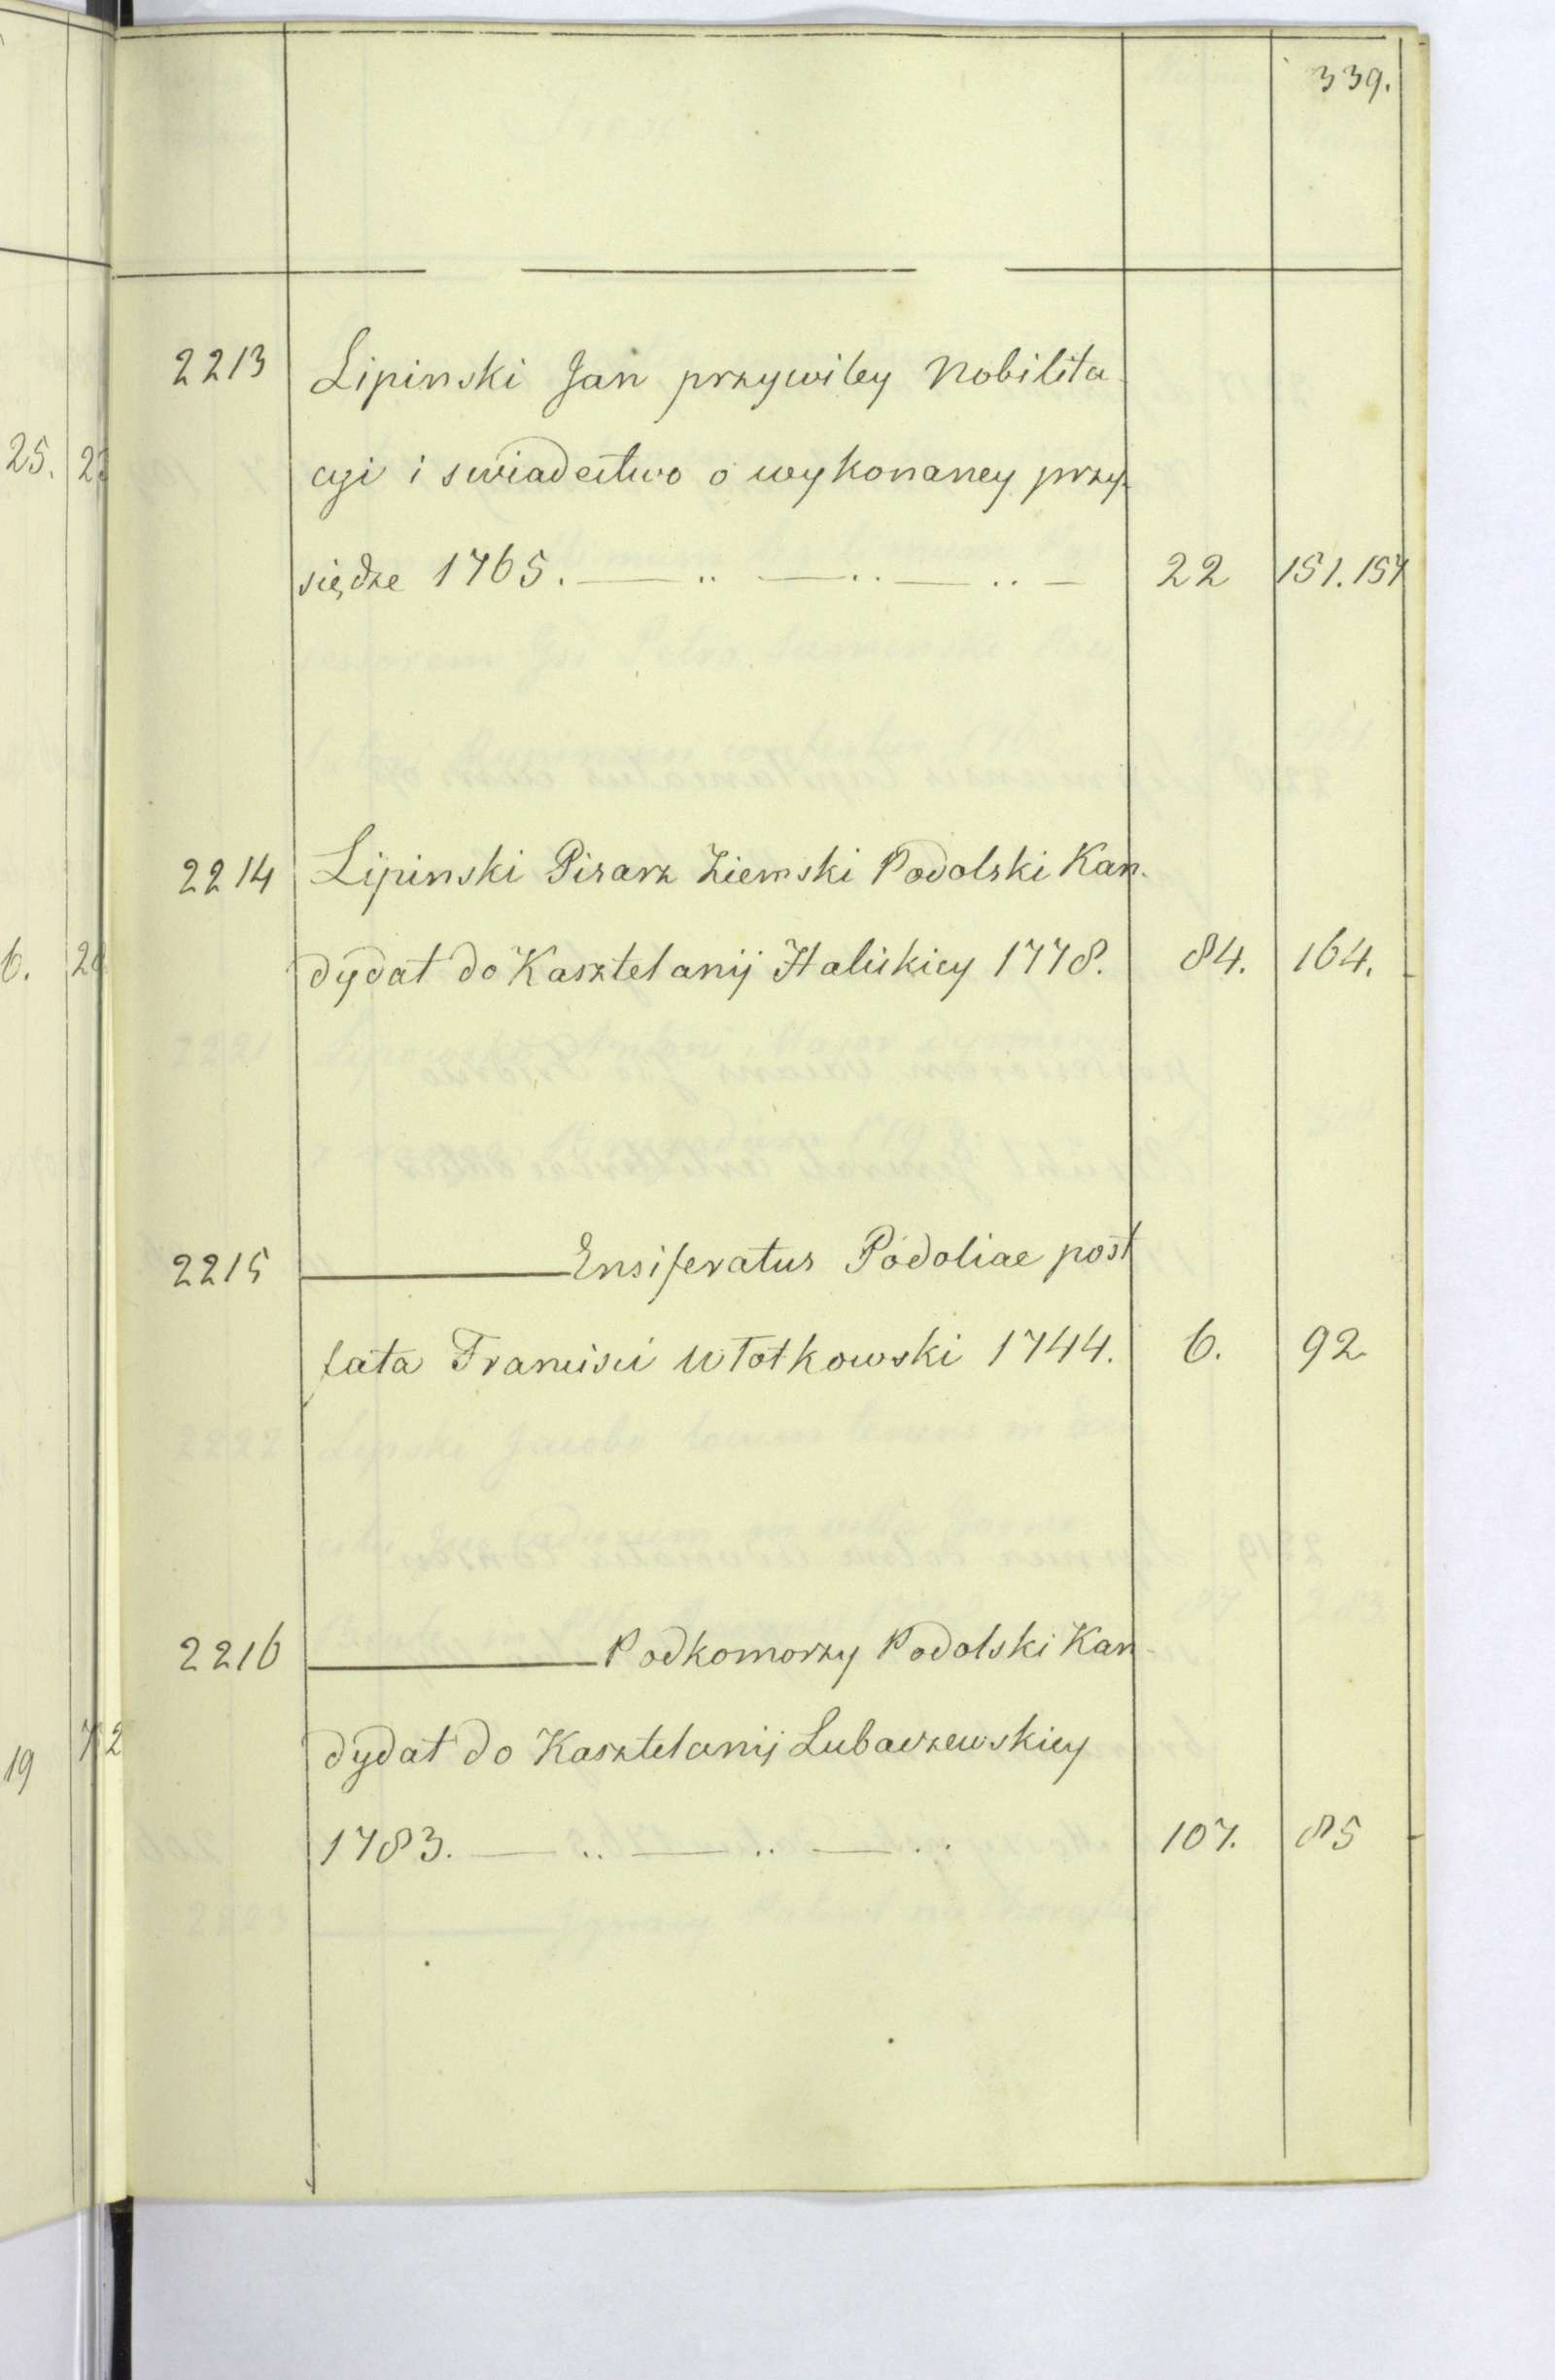 339.
2213 Lipinski Jan przywiley Nobilita
cyi i swiadectwo o wykonaney przy-
siędze 1765. 22 151. 157
2214 Lipinski Pisarz Ziemski Podolski Kan-
dydat do Kasztelanij Halickiey 1778. 84. 164.
2215 Ensiferatus Podoliae post
fata Francisci Wlotkowski 1744. 6. 92
2216 Podkomorzy Podolski Kan-
dydat do Kasztelanij Lubaczewskiey
1783. 107. 85